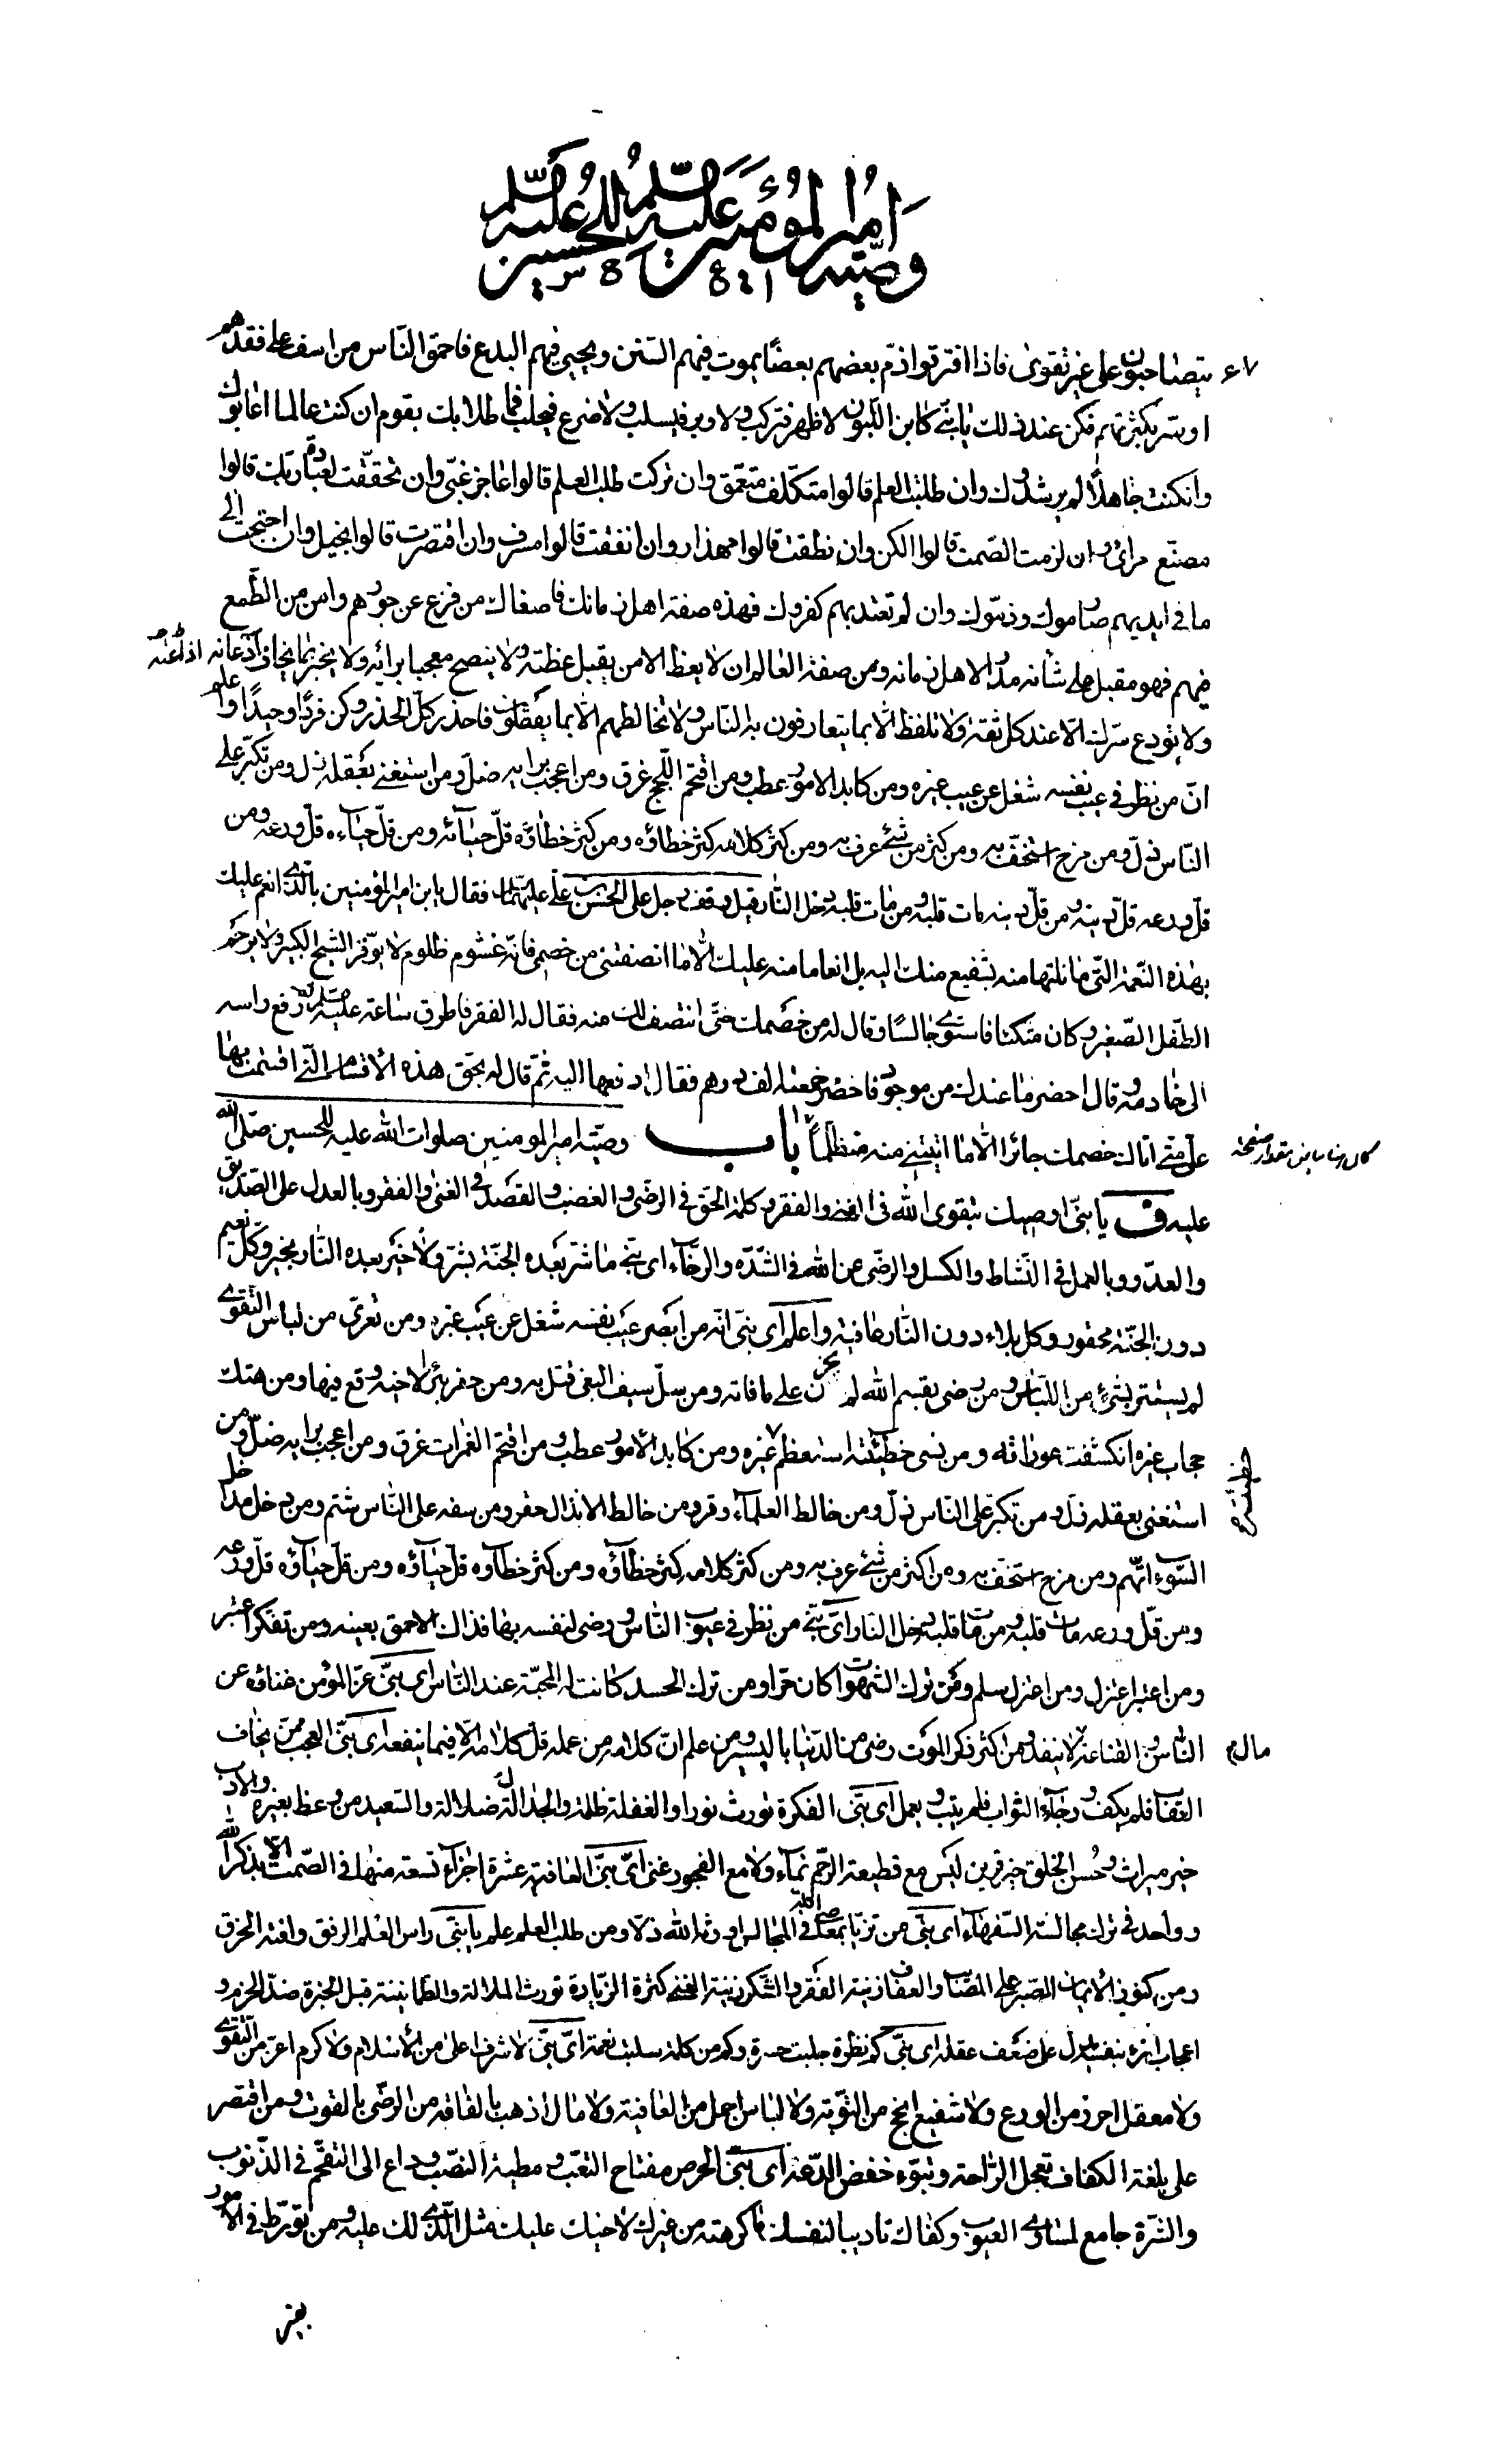 وصيّة امير المؤمنين عليه السّلم للحسين عليه السّلم
٦٧
يتصاحبون على غير تقوى فاذا افترقوا ذمّ بعضهم بعضًا يموت فيهم السّنن ويحيى فيهم البدع فاحمق النّاس من اسف على فقدهم
او سرّ بكثرتهم فكن عند ذلك يا بنىّ كابن اللّبون لا ظهر فيركب ولا وبر فيسلب ولا ضرع فيحلب فما طلابك بقوم ان كنت عالما اعابوك
وان كنت جاهلاً لم يرشدوك وان طلبت العلم قالوا متكلّف متعمّق وان تركت طلب العلم قالوا عاجز غبىّ وان تحققت لعبادة ربّك قالوا
مصنّع مرائ وان لزمت الصّمت قالوا الكن وان نطقت قالوا مهذار وان انفقت قالوا مسرف وان اقتصرت قالوا بخيل وان احتجت الى
ما فى ايديهم صاموك وذمّوك وان لم تعتد بهم كفروك فهذه صفة اهل زمانك فاصغاك من فزع عن جورهم وامن من الطّمع
فيهم فهو مقبل على شأنه مدار لاهل زمانه ومن صفة العالم ان لا يعظ الا من يقبل عظته ولا ينصح معجبا برائه ولا يخبر بما يخاف اذاعته
ولا تودع سرّك الّا عند كل ثقة ولا تلفظ الّا بما يتعارفون به النّاس ولا تخالطهم الّا بما يفعلون فاحذر كلّ الحذر وكن فردًا وحيدًا واعلم
انّ من نظر فى عيب نفسه شغل عن عيب غيره ومن كابد الامور عطب ومن اقتحم اللّجج غرق ومن اعجب برايه ضلّ ومن استغنى بعقله زل ومن تكبّر على
النّاس ذلّ ومن مزح استخفّ به ومن كثر من شئ عرف به ومن كثر كلامه كثر خطاؤه ومن كثر خطاؤه قلّ حياؤه ومن قلّ حياءه قلّ ورعه ومن
قلّ ورعه قلّ دينه ومن قلّ دينه مات قلبه ومن مات قلبه دخل النّار قيل وقف رجل على الحسن بن علىّ عليهما فقال يا بن امير المؤمنين بالّذى انعم عليك
بهذه النّعمة الّتى ما نلتها منه بشفيع منك اليه بل انعاما منه عليك الّا ما انصفتنى من خصمى فانّه غشوم ظلوم لا يوقّر الشّيخ الكبير ولا يرحم
الطّفل الصّغير وكان متكئا فاستوى جالسًا وقال له من خصمك حتّى انتصف لك منه فقال له الفقر فاطرق ساعة عليه السّلم ثمّ رفع راسه
الى خادمه وقال احضر ما عندك من موجود فاحضر خمسة الف درهم فقال ادفعها اليه ثمّ قال له بحقّ هذه الاقسام الّتى اقسمت بها
علىّ متى اتاك خصمك جائرا الّا ما اتيتنى منه متظلّماً باب وصيّة امير المومنين صلوات الله عليه للحسين صلّى الله
عليه ف يا بنىّ اوصيك بتقوى الله فى الغنى والفقر وكلمة الحقّ فى الرضّى والغضب والقصد فى الغنى والفقر وبالعدل على الصّديق
والعدّو وبالعمل فى النّشاط والكسل والرضّى عن الله فى الشّدّه والرخّآء اى بنىّ ما شرّ بعده الجنّة بشرّ ولا خير بعده النّار بخير وكلّ نعيم
دون الجنّة محقور وكل بلاء دون النّار عافية واعلم اى بنىّ انّه من ابصر عيب نفسه شغل عن عيب غيره ومن تعرّى من لباس التّقوى
لم يستتر بشئ من اللّباس ومن رضى بقسم الله لم يحزن على ما فاته ومن سلّ سيف البغى قتل به ومن حفر بئرًا لاخيه وقع فيها ومن هتك
حجاب غيره انكشفت عوراته ومن نسى خطيئته استعظم غيره ومن كابد الأمور عطب ومن اقتحم الغمرات غرق ومن اعجب برايه ضلّ ومن
استغنى بعقله زلّ ومن تكبّر على النّاس ذلّ ومن خالط العلمآء وقر ومن خالط الانذال حقر ومن سفه على النّاس شتم ومن دخل مداخل
السّوء اتّهم ومن مزح استخفّ به ومن اكثر من شئ عرف به ومن كثر كلامه كثر خطآؤه ومن كثر خطآوه قلّ حيآؤه ومن قلّ حيآؤه قلّ ورعه
ومن قلّ ورعه مات قلبه ومن مات قلبه دخل النار اى بنىّ من نظر فى عيوب النّاس ورضى لنفسه بها فذاك الاحمق بعينه ومن تفكّر اعتبر
ومن اعتبر اعتزل ومن اعتزل سلم ومن ترك الشهوات كان حرّا ومن ترك الحسد كانت له المحبّة عند النّاس اى بنىّ عزّ المؤمن غناؤه عن
النّاس والقناعة مال لا ينفد ومن اكثر ذكر الموت رضى من الدّنيا باليسير ومن علم انّ كلامه من عمله قلّ كلامه الّا فيما ينفعه اى بنىّ العجب ممّن يخاف
العقاب فلم يكفّ ورجآء الثواب فلم يتب ويعمل اى بنىّ الفكرة تورث نورا والغفلة ظلمة والجدالة ضلالة والسّعيد من وعظ بغيره والادب
خير ميراث وحُسن الخلق خير قرين ليس مع قطيعة الرّحم نمآء ولا مع الفجور غنى اى بنىّ العافية عشرة اجزآء تسعة منها فى الصّمت الّا بذكر الله
وواحد فى ترك مجالسة السّفهاء اى بنىّ من تزيّا بمعاصى الله فى المجالس اورثه الله ذلّا ومن طلب العلم علم يا بنىّ راس العلم الرفق وافته الخرق
ومن كنوز الأيمان الصّبر على المصائب والعفاف زينة الفقر والشّكر زينة الغنى كثرة الزّيارة تورث الملالة والطمأنينة قبل الخبرة ضدّ الحزم و
اعجاب المرء بنفسه يدل على ضعف عقله اى بنىّ كم نظرة جلبت حسرة وكم من كلمة سلبت نعمة اى بنىّ لا شرف اعلى من الأسلام ولا كرم اعزّ من التّقوى
ولا معقل احرز من الورع ولا شفيع انجح من التّوبة ولا لباس اجمل من العافية ولا مال اذهب بالفاقه من الرضّى بالقوت ومن اقتصر
على بلغة الكفاف تعجل الرّاحة وتبوّء خفض الدّعة اى بنىّ الحرص مفتاح التعّب ومطية النصّب وداع الى التقحّم فى الذّنوب
والشّرة جامع لمساوى العيوب وكفاك تاديبا لنفسك ما كرهته من غيرك لاخيك عليك مثل الّذى لك عليه ومن تورّط فى الامور
بغير